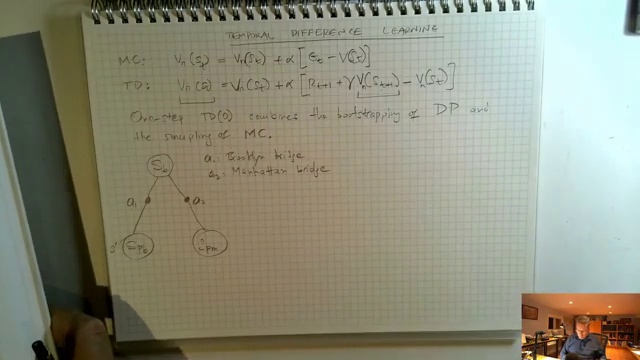 TEMPORAL DIFFERENCE LEARNING
MC: Vπ(St) = Vπ(St) + α [Gt − V(St)]
TD: Vπ(St) = Vπ(St) + α [Rt+1 + γ Vπ(St+1) − Vπ(St)]
One-step TD(0) combines the bootstrapping of DP and
the sampling of MC.
a1: Brooklyn bridge
a2: Manhattan bridge
Sb
a1
a2
s'
Spb
Spm